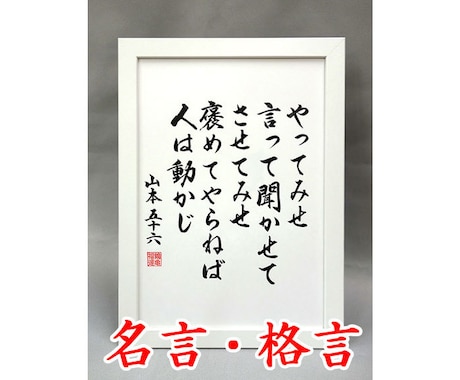 やってみせ
言って聞かせて
させてみせ
褒めてやらねば
人は動かじ
山本五十六
名言・格言